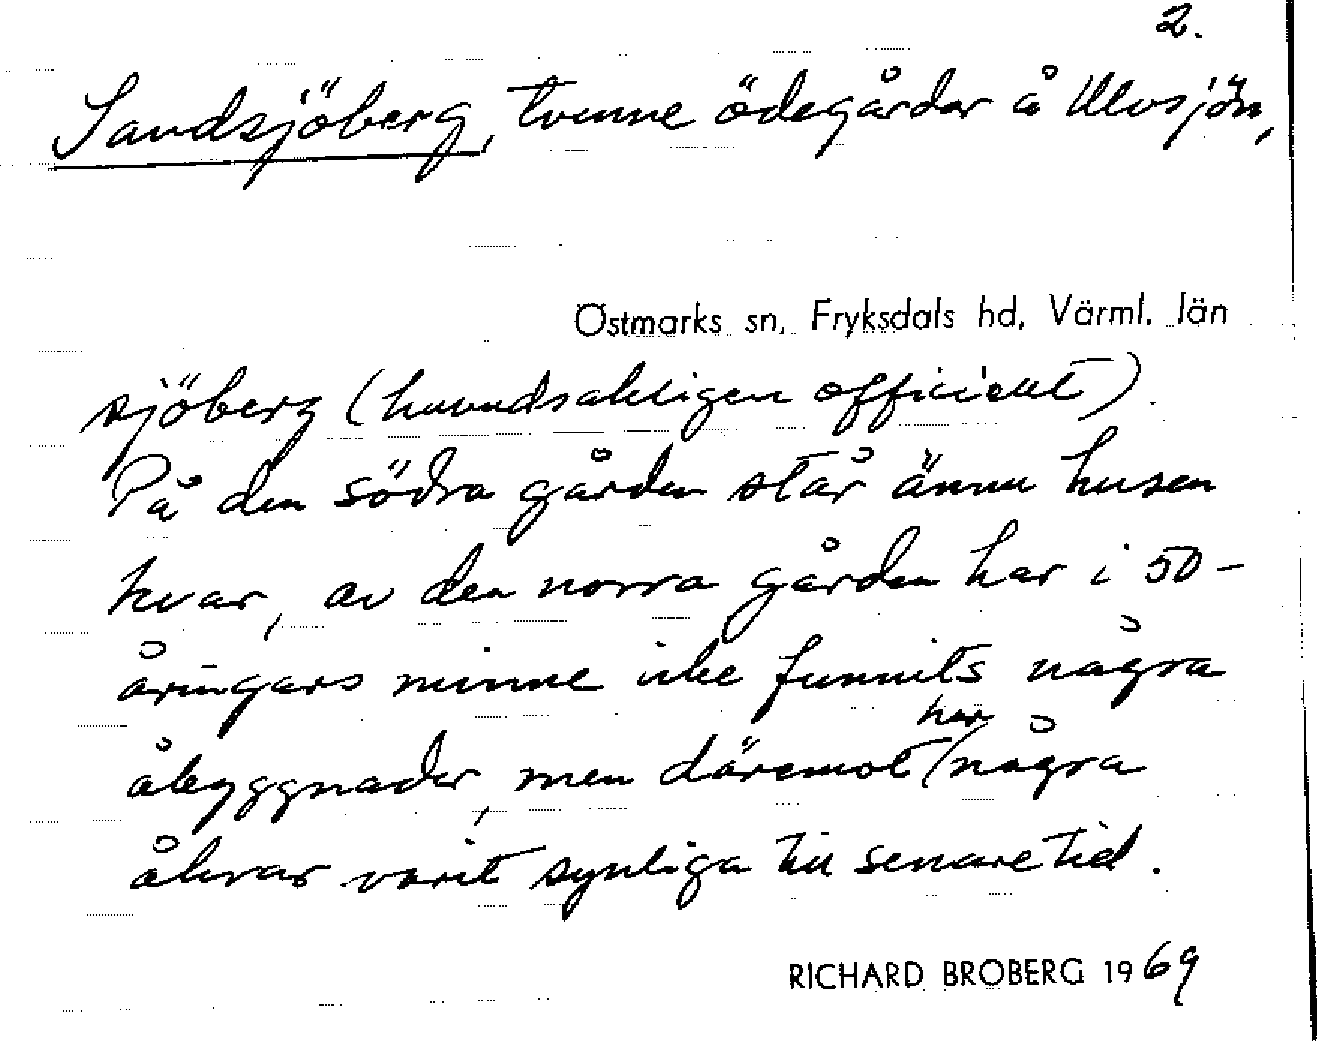 2.
Sandsjöberg, tvenne ödegårdar å Ulvsjön,
Östmarks sn, Fryksdals hd, Värml. län
sjöberg (huvudsakligen officiellt).
På den södra gården står ännu husen
kvar, av den norra gården har i 50-
åringars minne icke funnits några
åbyggnader, men däremot har några
åkrar varit synliga till senare tid.
RICHARD BROBERG 1969